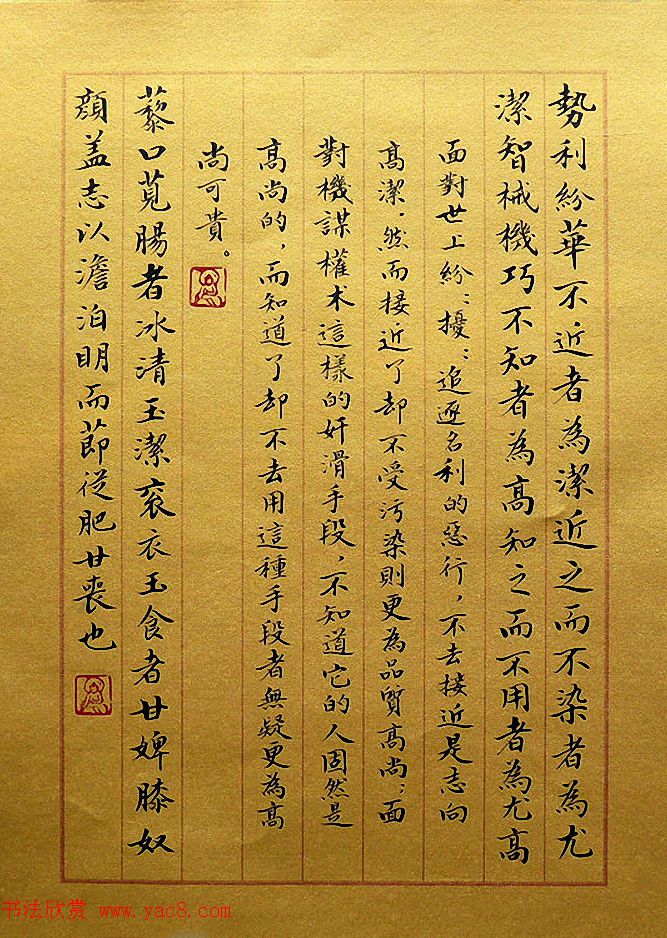 勢利紛華不近者為潔近之而不染者為尤
潔智械機巧不知者為高知之而不用者為尤高
面對世上紛〻擾〻追逐名利的惡行，不去接近是志向
高潔，然而接近了却不受污染則更為品質高尚；面
對機謀權术這樣的奸滑手段，不知道它的人固然是
高尚的，而知道了却不去用這種手段者無疑更為高
尚可貴。
藜口莧腸者冰清玉潔衮衣玉食者甘婢膝奴
顏盖志以澹泊明而節從肥甘喪也
书法欣赏 www.yac8.com